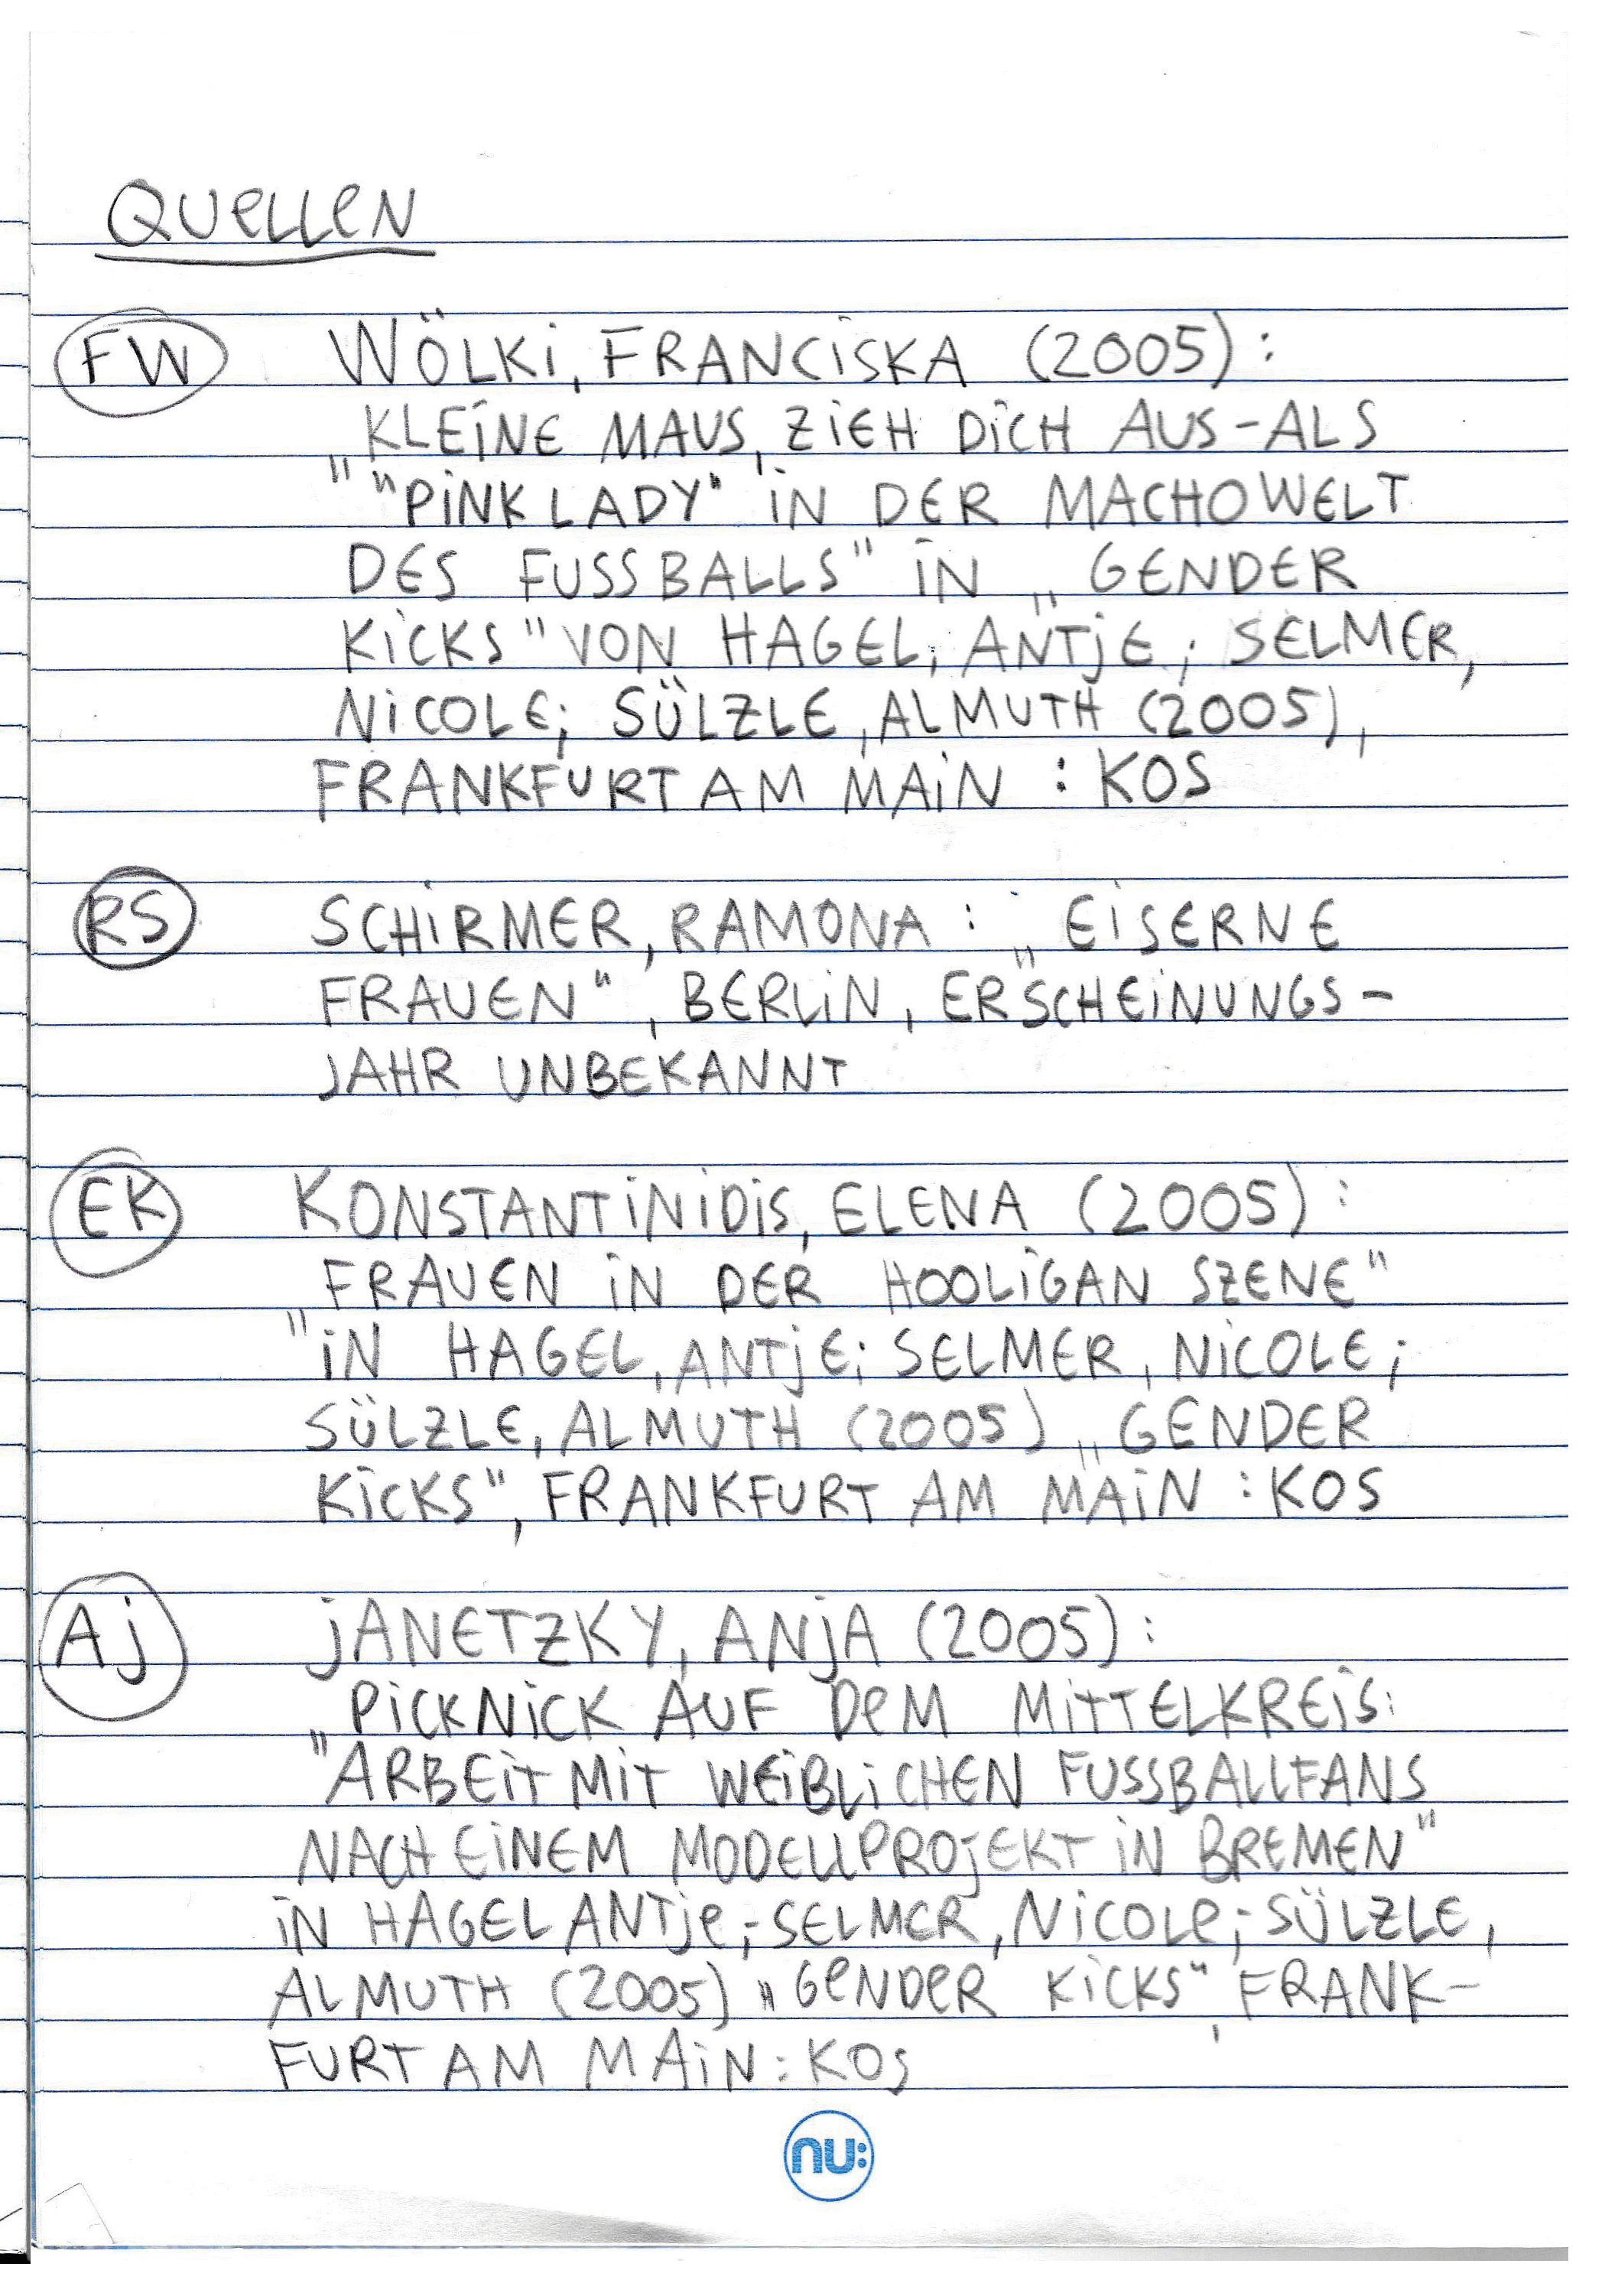 QUELLEN
FW WÖLKI, FRANCISKA (2005):
„KLEINE MAUS, ZIEH DICH AUS-ALS
"PINK LADY" IN DER MACHOWELT
DES FUSSBALLS" IN „GENDER
KICKS" VON HAGEL, ANTJE; SELMER,
NICOLE; SÜLZLE, ALMUTH (2005),
FRANKFURT AM MAIN : KOS
RS SCHIRMER, RAMONA : „EISERNE
FRAUEN", BERLIN, ERSCHEINUNGS-
JAHR UNBEKANNT
EK KONSTANTINIDIS, ELENA (2005):
„FRAUEN IN DER HOOLIGAN SZENE"
IN HAGEL, ANTJE; SELMER, NICOLE;
SÜLZLE, ALMUTH (2005) „GENDER
KICKS", FRANKFURT AM MAIN : KOS
AJ JANETZKY, ANJA (2005):
„PICKNICK AUF DEM MITTELKREIS:
ARBEIT MIT WEIBLICHEN FUSSBALLFANS
NACH EINEM MODELLPROJEKT IN BREMEN"
IN HAGEL ANTJE; SELMER, NICOLE; SÜLZLE,
ALMUTH (2005) „GENDER KICKS", FRANK-
FURT AM MAIN : KOS
nu: